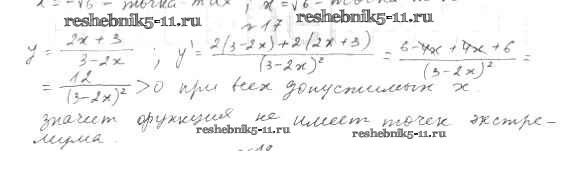 x = -√6 – точка max ; x = √6 – точка
reshebnik5-11.ru reshebnik5-11.ru
№17
y = (2x + 3)/(3 - 2x) ; y' = (2(3-2x)+2(2x+3))/(3-2x)² = (6-4x+4x+6)/(3-2x)² =
= 12/(3-2x)² > 0 при всех допустимых x.
значит функция не имеет точек экстре-
reshebnik5-11.ru reshebnik5-11.ru
мума.